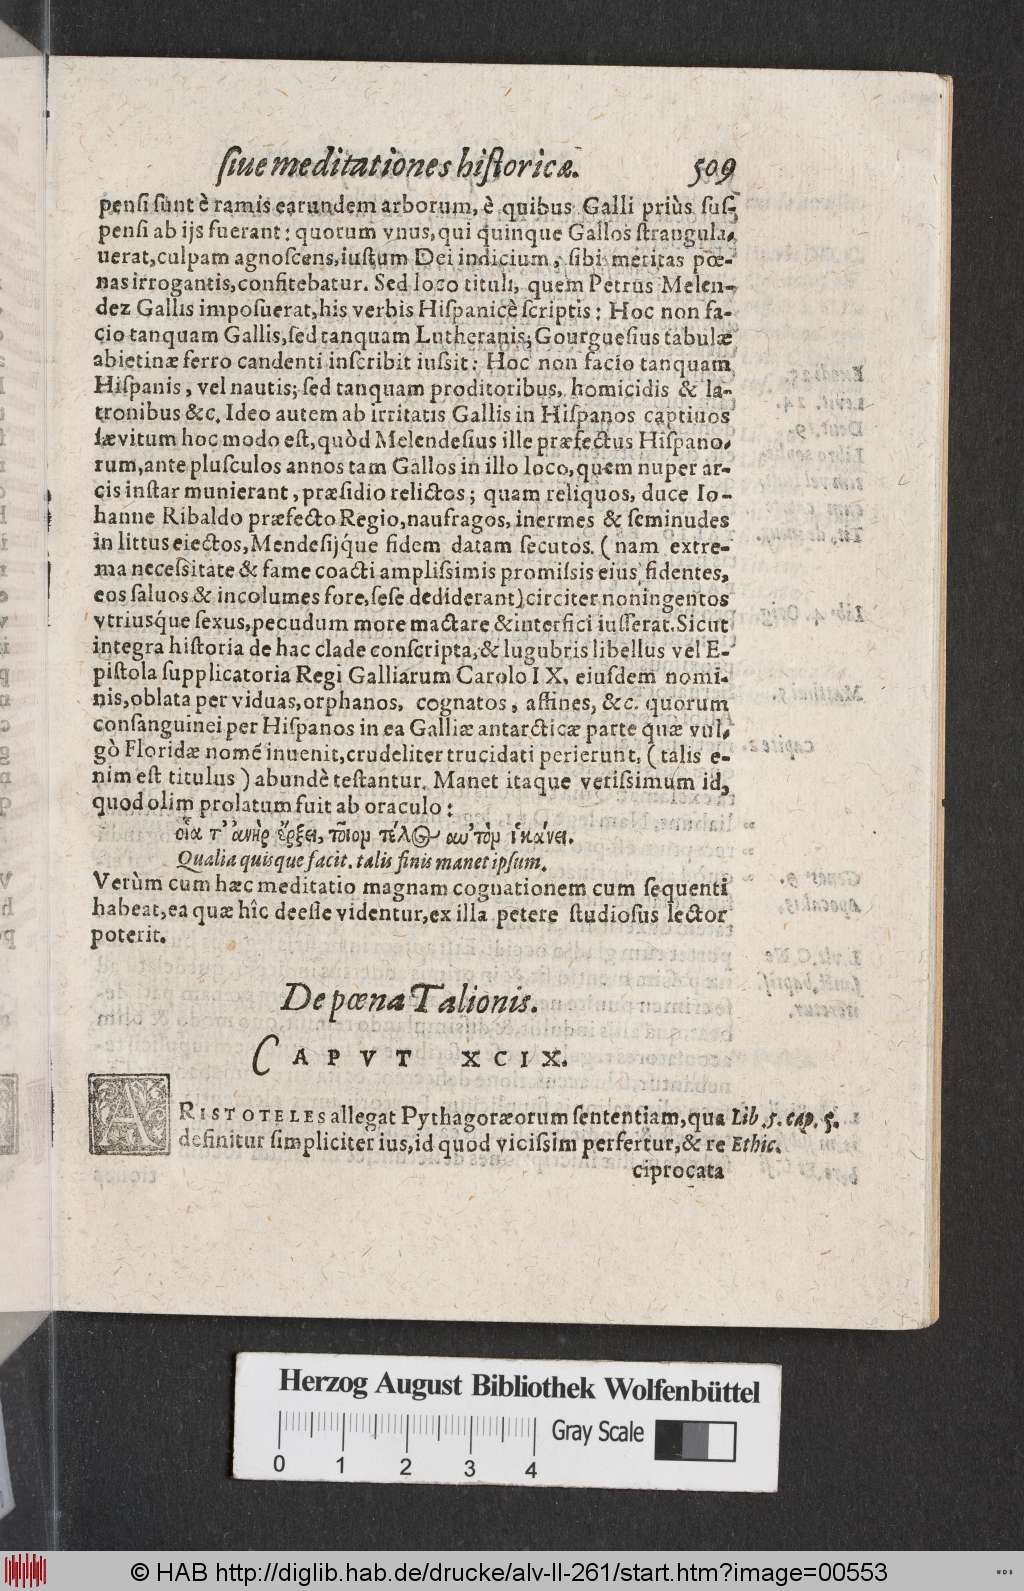 ſiue meditationes hiſtoricæ. 509
penſi ſunt è ramis earundem arborum, è quibus Galli priùs ſuſ-
penſi ab ijs fuerant: quorum vnus, qui quinque Gallos ſtrangula-
uerat, culpam agnoſcens, iuſtum Dei indicium, ſibi meritas pœ-
nas irrogantis, confitebatur. Sed loco tituli, quem Petrus Melen-
dez Gallis impoſuerat, his verbis Hiſpanicè ſcriptis: Hoc non fa-
cio tanquam Gallis, ſed tanquam Lutheranis; Gourgueſius tabulæ
abietinæ ferro candenti inſcribit iuſsit: Hoc non facio tanquam
Hiſpanis, vel nautis; ſed tanquam proditoribus, homicidis & la-
tronibus &c. Ideo autem ab irritatis Gallis in Hiſpanos captiuos
ſævitum hoc modo eſt, quòd Melendeſius ille præfectus Hiſpano-
rum, ante pluſculos annos tam Gallos in illo loco, quem nuper ar-
cis inſtar munierant, præſidio relictos; quam reliquos, duce Io-
hanne Ribaldo præfecto Regio, naufragos, inermes & ſeminudes
in littus eiectos, Mendeſijq́ue fidem datam ſecutos. (nam extre-
ma neceſsitate & fame coacti ampliſsimis promiſsis eius fidentes,
eos ſaluos & incolumes fore, ſeſe dediderant) circiter noningentos
vtriusq́ue ſexus, pecudum more mactare & interfici iuſſerat. Sicut
integra hiſtoria de hac clade conſcripta, & lugubris libellus vel E-
piſtola ſupplicatoria Regi Galliarum Carolo IX. eiuſdem nomi-
nis, oblata per viduas, orphanos, cognatos, affines, &c. quorum
conſanguinei per Hiſpanos in ea Galliæ antarcticæ parte quæ vul-
gò Floridæ nomē inuenit, crudeliter trucidati perierunt, (talis e-
nim eſt titulus) abundè teſtantur. Manet itaque veriſsimum id,
quod olim prolatum fuit ab oraculo:
οἷα τ' ἀνὴρ ἔρξει, τοῖον τέλος αὐτὸν ἱκάνει.
Qualia quisque facit. talis finis manet ipſum.
Verùm cum hæc meditatio magnam cognationem cum ſequenti
habeat, ea quæ hîc deeſſe videntur, ex illa petere ſtudioſus lector
poterit.
De pœna Talionis.
CAPVT XCIX.
ARISTOTELES allegat Pythagoræorum ſententiam, qua Lib. 5. cap. 5.
definitur ſimpliciter ius, id quod viciſsim perfertur, & re Ethic.
ciprocata
Herzog August Bibliothek Wolfenbüttel
Gray Scale
0 1 2 3 4
© HAB http://diglib.hab.de/drucke/alv-ll-261/start.htm?image=00553